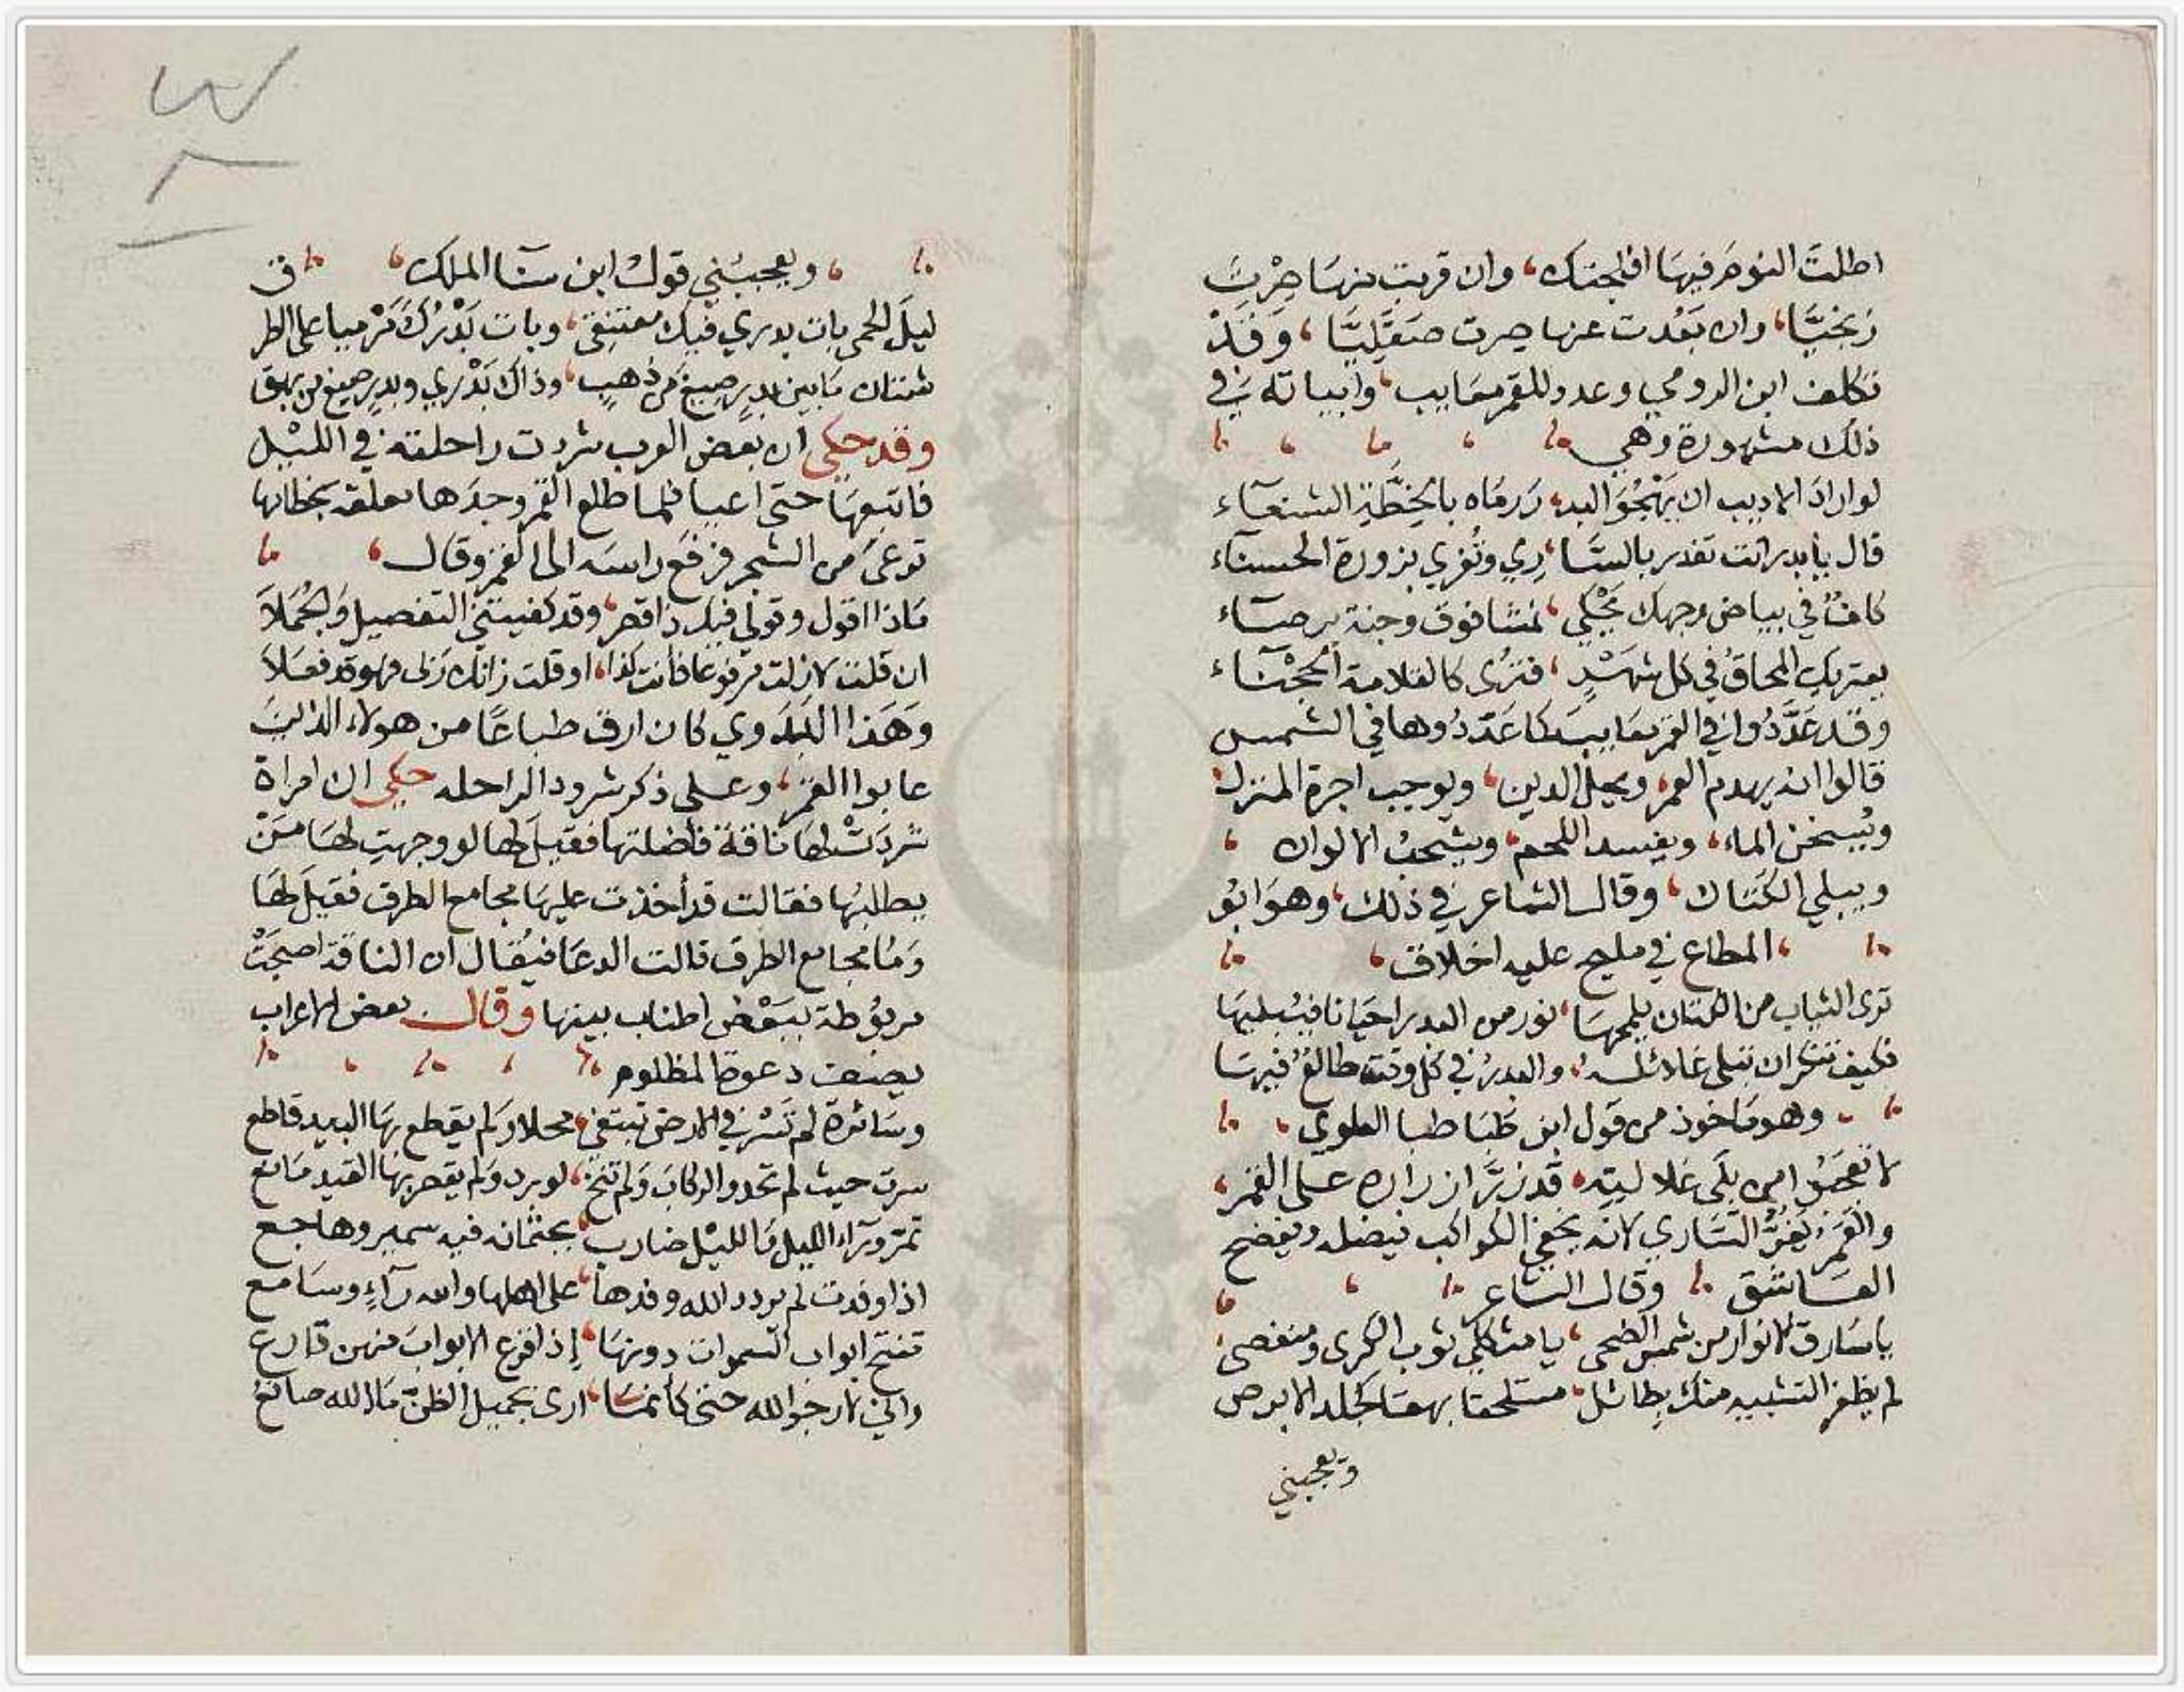 اطلتَ النومَ فيها افلجتك، وان قربت منها صِرْتَ
زنجيًّا، وان بَعُدت عنها صرت صَقَلِيًّا، وَقَدْ
تكلف ابن الرومي وعدد للقمر معَايب، وابياته في
ذلك مشهورة وهي
لو ارادَ الاديب ان يَهْجُوَ البد، رَ رمَاه بالخِطَّةِ الشنعَآء
قال يا بدر انت تغدر بالسَّا، رِي وتُغري بزورة الحسنآء
كلفٌ في بياض وجهك يَحْكي، نمشا فوق وجنة برصَآء
يعتريك المحَاقُ في كل شهْرٍ، فترى كالقلامة الحَجْنَآء
وقد عَدَّدُوا في القمر معَايب كما عَدَّدُوها في الشمس
قالوا انه يهدم العمر، ويحل الدين، ويوجب اجرة المنزل
ويُسخن الماء، ويفسد اللحم، ويشحبُ الالوان،
ويبلي الكَتان، وقال الشاعر في ذلك، وهوَ ابوُ
، المطاع في مليح عليه اخلاق،
ترى الثياب من الكتان يلمحهَا، نور من البدر احيَانا فيُبليهَا
فكيف تنكر ان تبلى غلائلُه، والبدرُ في كل وقت طالعٌ فيهَا
، وهو مَاخوذ من قول ابن طَبَا طبا العلوي،
لا تعجبُوا من بِلَى غلالته، قد زرَّ ازراره على القمر،
والقمرُ يَغرُّ السَّاري لانه يخفي الكواكب فيضله ويفضح
العَاشق وقال الشاعر
يا سَارق الانوار من شمس الضحى، يا مثكلي ثوب الكرى ومنغصي،
لم يظفر التشبيه منك بطائل، متسلخا بهقا كجلد الابرص
ويعجبني
، ويعجبُني قول ابن سنآ الملك، في
ليلَ الحمى بات بدري فيك معتنقي، وبات بَدْرُكَ مَرْميا على الطر
شتان مَا بين بدرٍ صيغ من ذهبٍ، وذاك بَدْري وبدرٍ صيغ من بهق
وقد حكي ان بعض العرب شردت راحلته في الليْل
فاتبعهَا حتى اعيا فلما طلع القمر وجدَها معلقة بخطامها
ترعىَ من الشجر فرفع راسَه الى القمر وقال،
مَاذا اقول وقولي فيك ذا قصر، وقد كفيتني التفصيل وَالجُمَلاَ
ان قلت لا زلت مرفوعا فانت كذا، او قلت زانك رَبى فهو قد فعَلاَ
وَهَذا البَدَوي كان ارق طباعًا من هولاء الذينَ
عابوا القمر، وعلى ذكر شرود الراحله حكي ان امراة
شردَتْ لهَا ناقة فاضلتها فقيلَ لها لو وجهتِ لهَا مَنْ
يطلبُها فقالت قد أخذت عليهَا مجامع الطرق فقيلَ لهَا
وَمَا مجامع الطرق قالت الدعَا فيُقال ان الناقة اصبحَتْ
مربوُطة ببَعْض اطناب بيتها وقال بعض الاعراب
يصف دعوة المظلوم
وسَائرة لم تَسْر في الارض تبتغي، محلا ولم يقطع بهَا البيد قاطع
سرت حيث لم تحدو الركاب وَلم تنخ، لورد ولم يقصر بهَا القيد مَانع
تمرّ ورَآء الليل وَالليْل ضارب، بجثمانه فيه سمير وهاجع
اذا وفدت لم يردد الله وفدها، على اهلها والله رَآءٍ وسَامع
تفتح ابواب السموات دونهَا، إذا قرع الابوابَ منهن قارع
واني لارجو الله حتى كأنمَا، ارى بجميل الظن مَا الله صانع